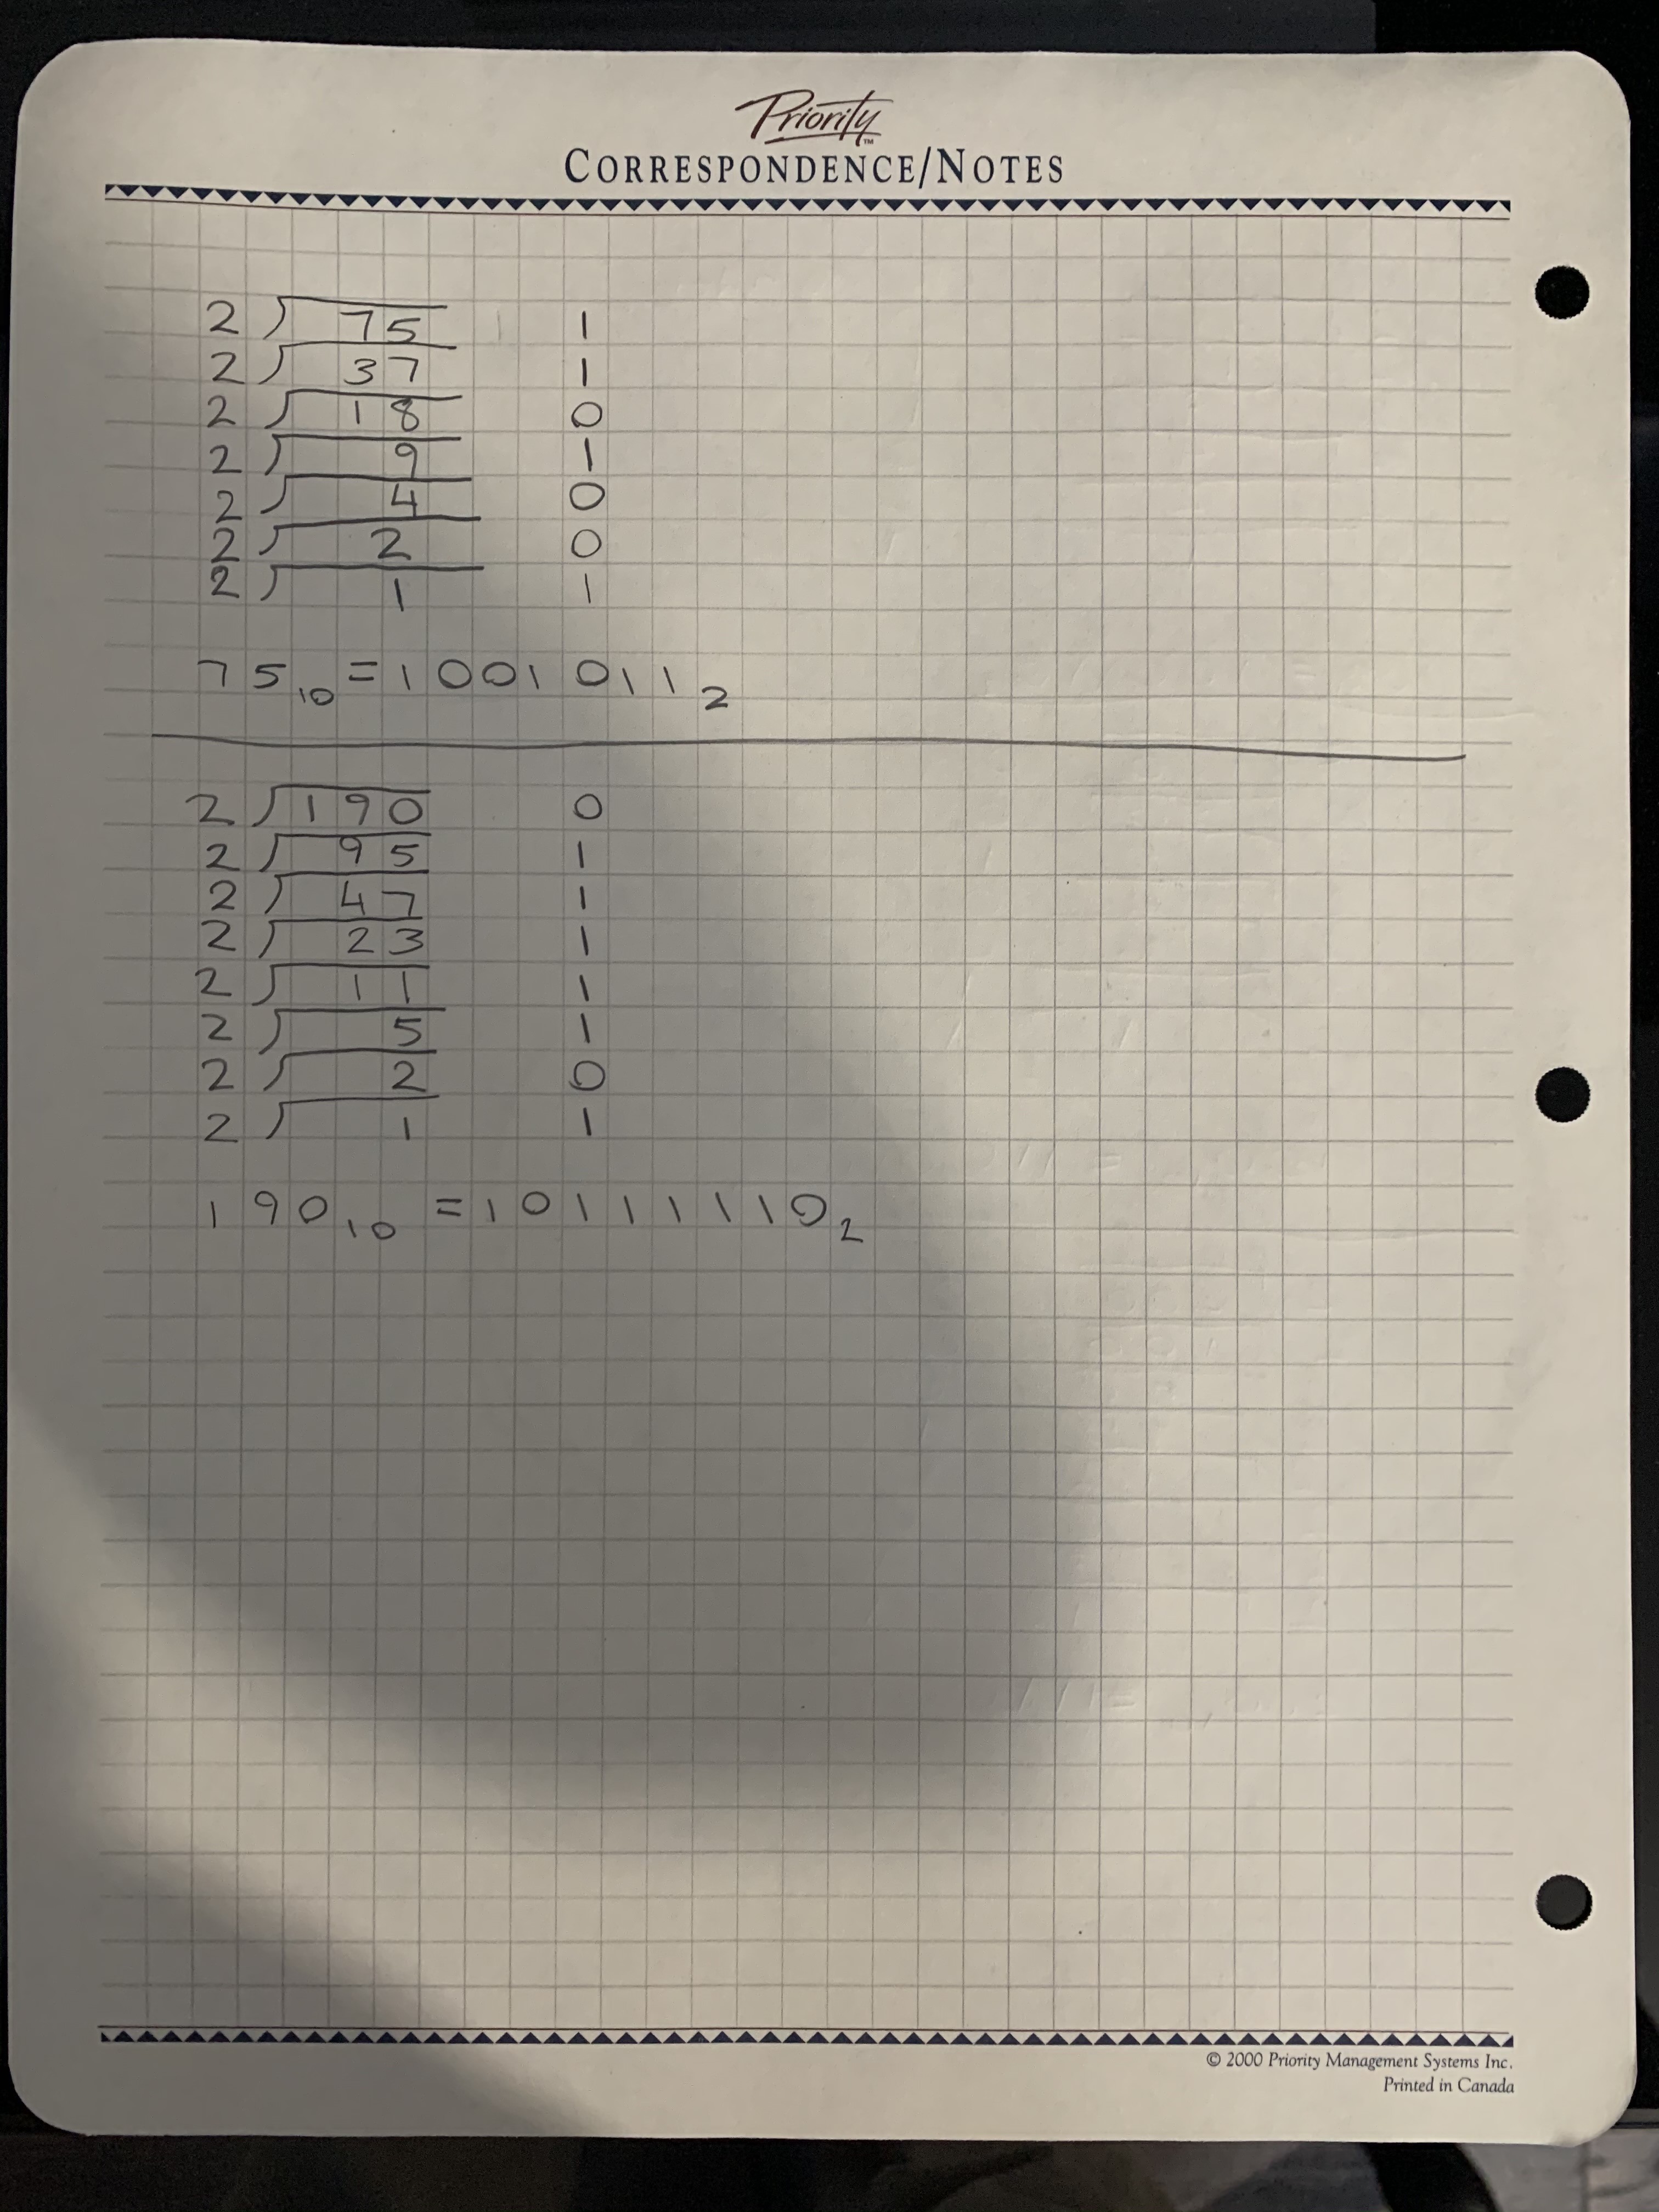 Priority™
CORRESPONDENCE/NOTES
2) 75 1
2) 37 1
2) 18 0
2) 9 1
2) 4 0
2) 2 0
2) 1 1
75₁₀ = 1001011₂
2) 190 0
2) 95 1
2) 47 1
2) 23 1
2) 11 1
2) 5 1
2) 2 0
2) 1 1
190₁₀ = 10111110₂
© 2000 Priority Management Systems Inc.
Printed in Canada